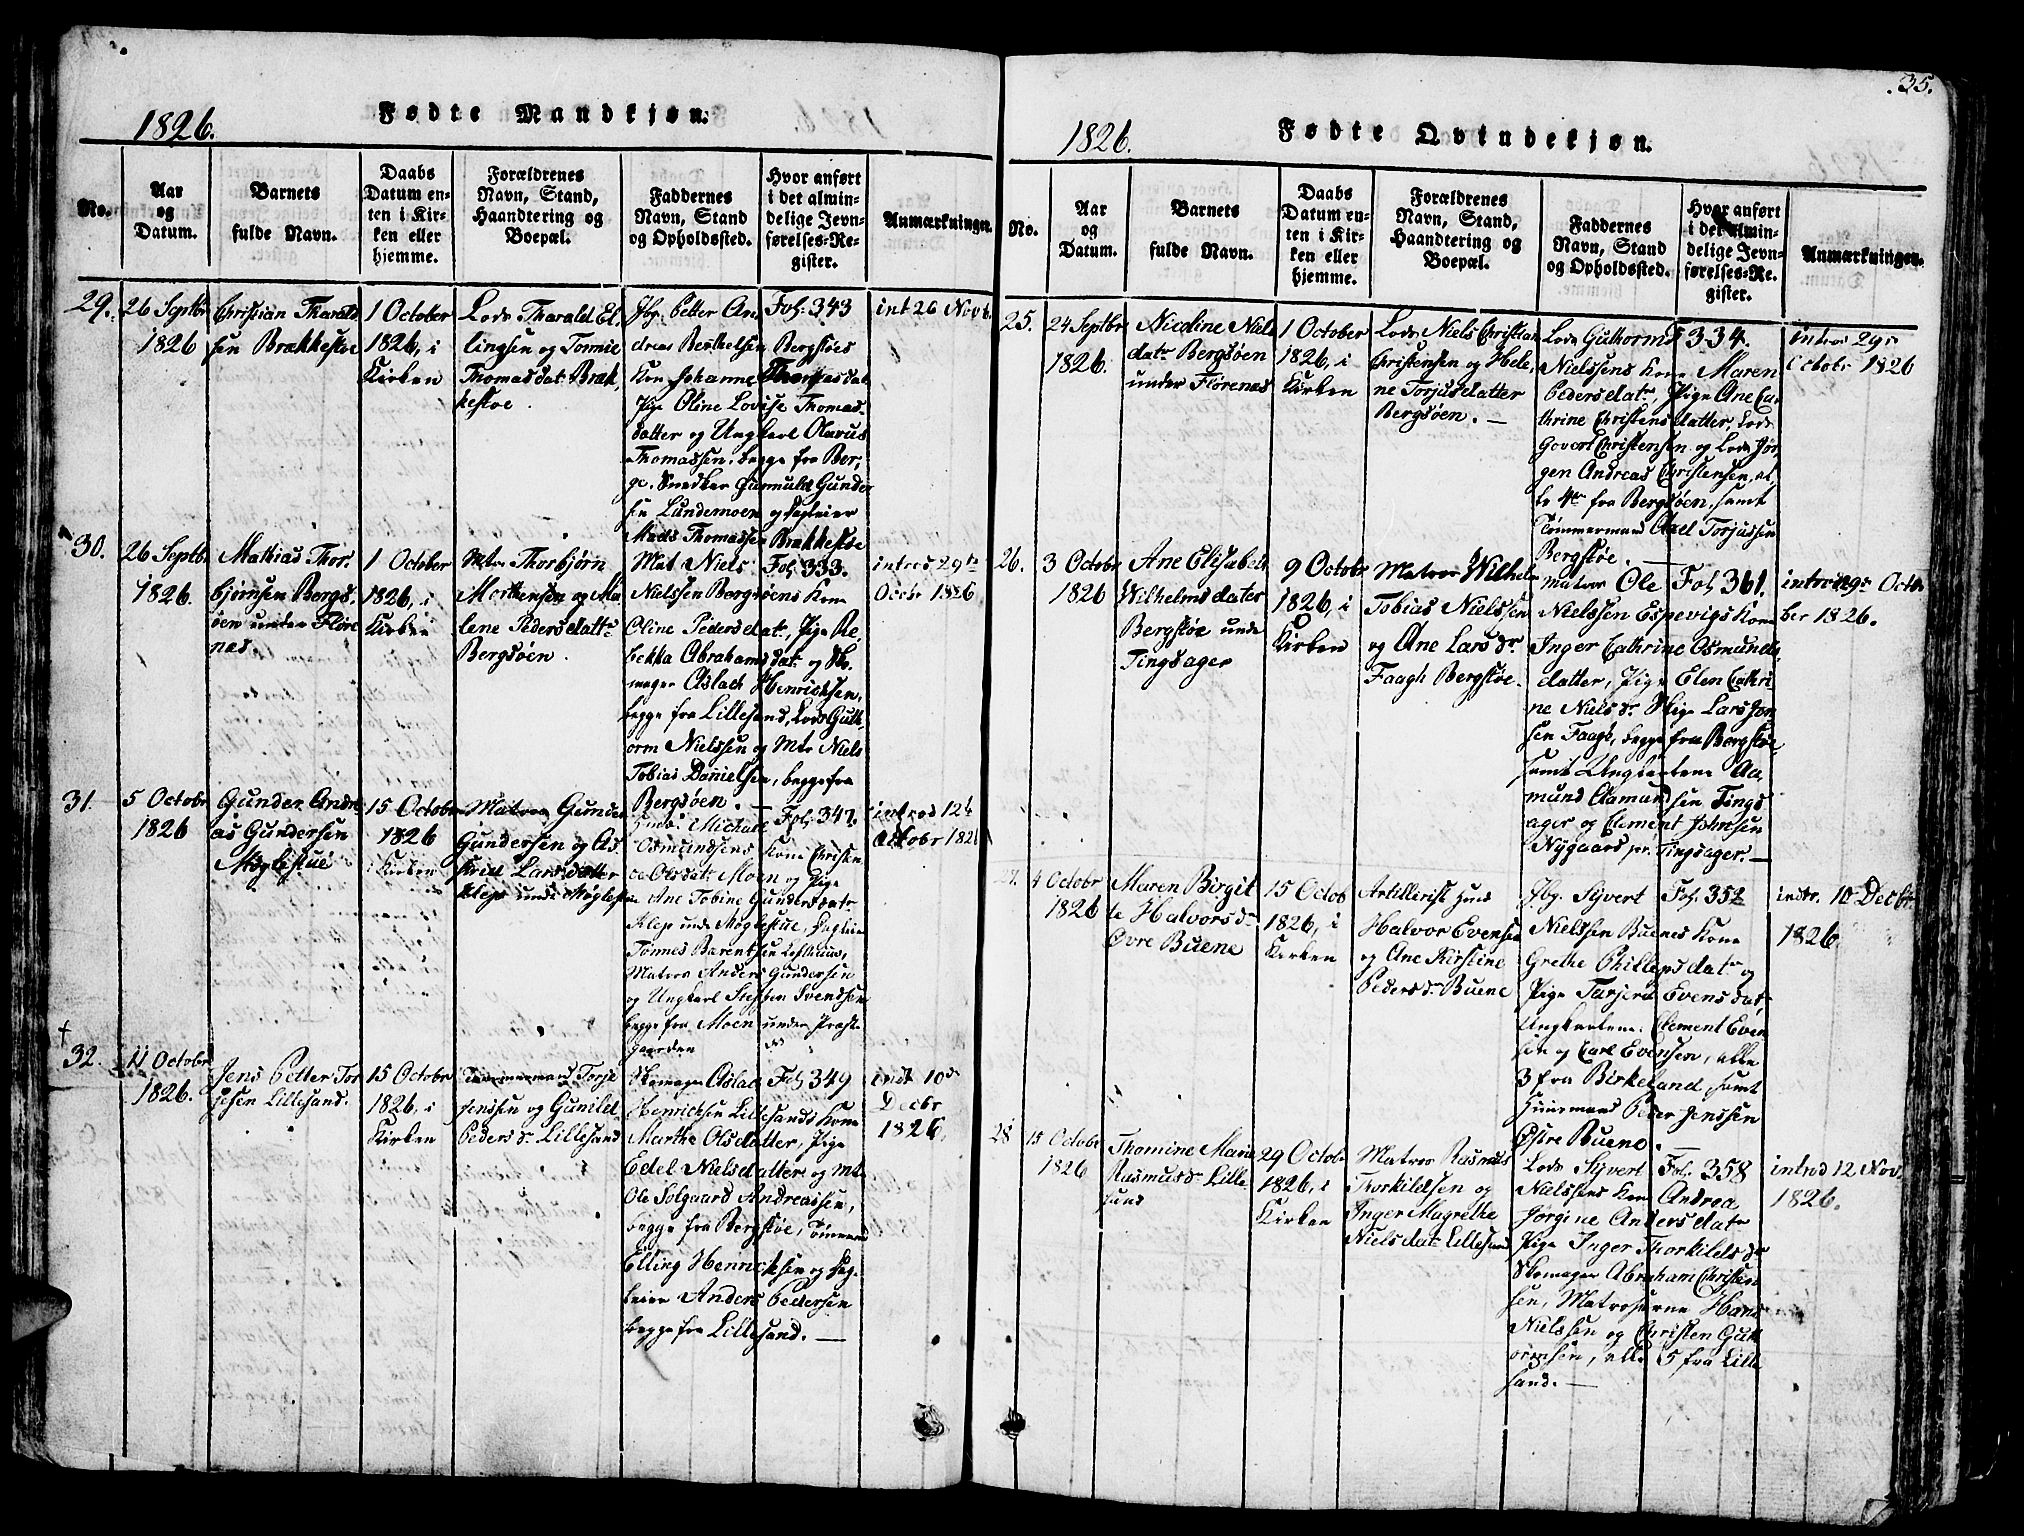 35.
1826.
Fødte Mandkjøn.
No.
Aar
og
Datum.
Barnets
fulde Navn.
Daabs
Datum en-
ten i Kir-
ken eller
hjemme.
Forældrenes
Navn, Stand,
Haandtering og
Boepæl.
Faddernes
Navn, Stand
og Opholdssted.
Hvor anført
i det almin-
delige Jevn-
førelses-Re-
gister.
Anmærkninger.
29.
26 Septbr
1826
Christian Tharald
sen Brækkestøe
1 October
1826, i
Kirken
Lods Tharald El-
lingsen og Tonnie
Thomasdatr Bræk
kestoe.
Jbg. Petter An
dreas Berthelsen Bergstøes
Kone Johanne Thomasdat
Pige Oline Lovise Thomas-
datter og Ungkarl Olavus
Thomassen, begge fra Ber-
ge. Snedker Gunnuld Gunder
sen Lundemoen og Sagleier
Mads Thomassen Brækkestøe
Fol. 343
int 26 Novbr
30.
26 Septbr
1826.
Mathias Thor-
bjørnsen Bergs-
øen under Fløre
næs
1 October
1826, i
Kirken
Mtr. Thorbjørn
Morthensen og Ma
lene Pedersdattr
Bergsøen.
Mat Niels
Nielssen Bergsøens Kone
Oline Pedersdatr, Pige Re
bekka Abrahamsdatr og Sko
mager Aslach Henrichsen,
begge fra Lillesand, Lods Guth
orm Nielssen og Mtr Niels
Tobias Danielsen, begge fra
Bergsøen. —
Fol. 333.
introd 29de
Octbr 1826
31.
5 Octobr
1826
Gunder Andre
as Gundersen
Møglestue
15 October
1826
i Kirken
Matros Gunder
Gundersen og As
krid Larsdatter
Klep under Møglestu
Huusm. Michael
Osmundsens Kone Christen
ce Olsdatr Moen og Pige
Ane Tobine Gundersdatr
Klep unde Møglestue,
Tønnes Barentsen
Matros Anders Gundersen
og Ungkarl Steffen Svendsen
begge fra Moen under Præste
gaarden
Fol. 347.
introd 12te
October 1826
†
32.
11 Octobr
1826.
Jens Petter Tor
jesen Lillesand.
15 Octobr
1826, i
Kirken
Tømmermand Torje
Jenssen og Gunild
Pedersdr Lillesand
Skomager Aslach
Henrichsen Lillesands Kone
Marthe Olsdatter, Pige
Edel Nielsdatter og Mtr
Ole Solgaard Andreassen,
begge fra Bergstøe, Tømmermd
Elling Henrichsen og Sag-
leier Anders Pedersen
begge fra Lillesand. —
Fol. 349
int 10de
Decbr
1826.
1826.
Fødte Qvindekjøn.
No.
Aar
og
Datum.
Barnets
fulde Navn.
Daabs
Datum en-
ten i Kir-
ken eller
hjemme.
Forældrenes
Navn, Stand,
Haandtering og
Boepæl.
Faddernes
Navn, Stand
og Opholdssted.
Hvor anført
i det almin-
delige Jevn-
førelses-Re-
gister.
Anmærkninger.
25.
24 Septbr
1826.
Nicoline Niels
datr Bergsøen
under Florenæs
1 October
1826, i
Kirken
Lods Niels Christian
Christensen og Hele,
ne Torjusdatter
Bergsøen. —
Lods Guthorm
Nielssens Kone Maren
Pedersdatr, Pige Ane Ca-
thrine Christensdatter, Lods
Govert Christensen og Lods Jør-
gen Andreas Christensen, al,
le 4re fra Bergsøen, samt
Tømmermand Axel Torjussen
Bergstøe —
F 334.
intros 29de
Octobr 1826
26.
3 Octobr
1826
Ane Elisabeth
Wilhelmsdater
Bergstøe unde
Tingsager
9 Octobr
1826, i
Kirken
Matros Wilhelm
Tobias Nielssen
og Ane Larsdr
Faagh Bergstøe.
Matros Ole
Nielssen Espevigs Kone
Inger Cathrine Osmunds-
datter, Pige Elen Cathri
ne Nielsdr Pige Lars Jon
sen Faagh, begge fra Bergstøe
samt Ungkarlene Aa,
mund Aamundsen Tings
ager og Clement Johnsen
Nygaard pr Tingsager. —
Fol 361.
introd 29de Octo
ber 1826.
27.
4 Octobr
1826
Maren Birgit
te Halvorsdr
Øvre Buene
15 Octob
1826, i
Kirken
Artillerist Huus
Halvor Evensen
og Ane Kirstine
Pedersdr Buene
Jbg. Syvert
Nielssen Buenes Kone
Grethe Phillipsdatr og
Pige Tarjerd Evensdatr
Ungkarlene Clement Even
sen og Carl Evensen, alle
3 fra Birkeland, samt
Huusmand Peder Jenssen
Østre Buene. —
Fol. 352
intr. 10 Decbr
1826.
28
15 Octobr
1826
Thomine Marie
Rasmusdr Lille
sand
29 Octobr
1826, i
Kirken
Matros Rasmus
Thorkildsen og
Inger Magrethe
Nielsdatr Lillesand
Lods Syvert
Nielssens Kone Andrea
Jørgine Andersdatr
Pige Inger Thorkildsdr
Skomager Abraham Christen
sen, Matroserne Hans
Nielssen og Christen Gutt
ormsen, alle 5 fra Lille
sand. —
Fol. 358
introd 12 Nov.
1826.